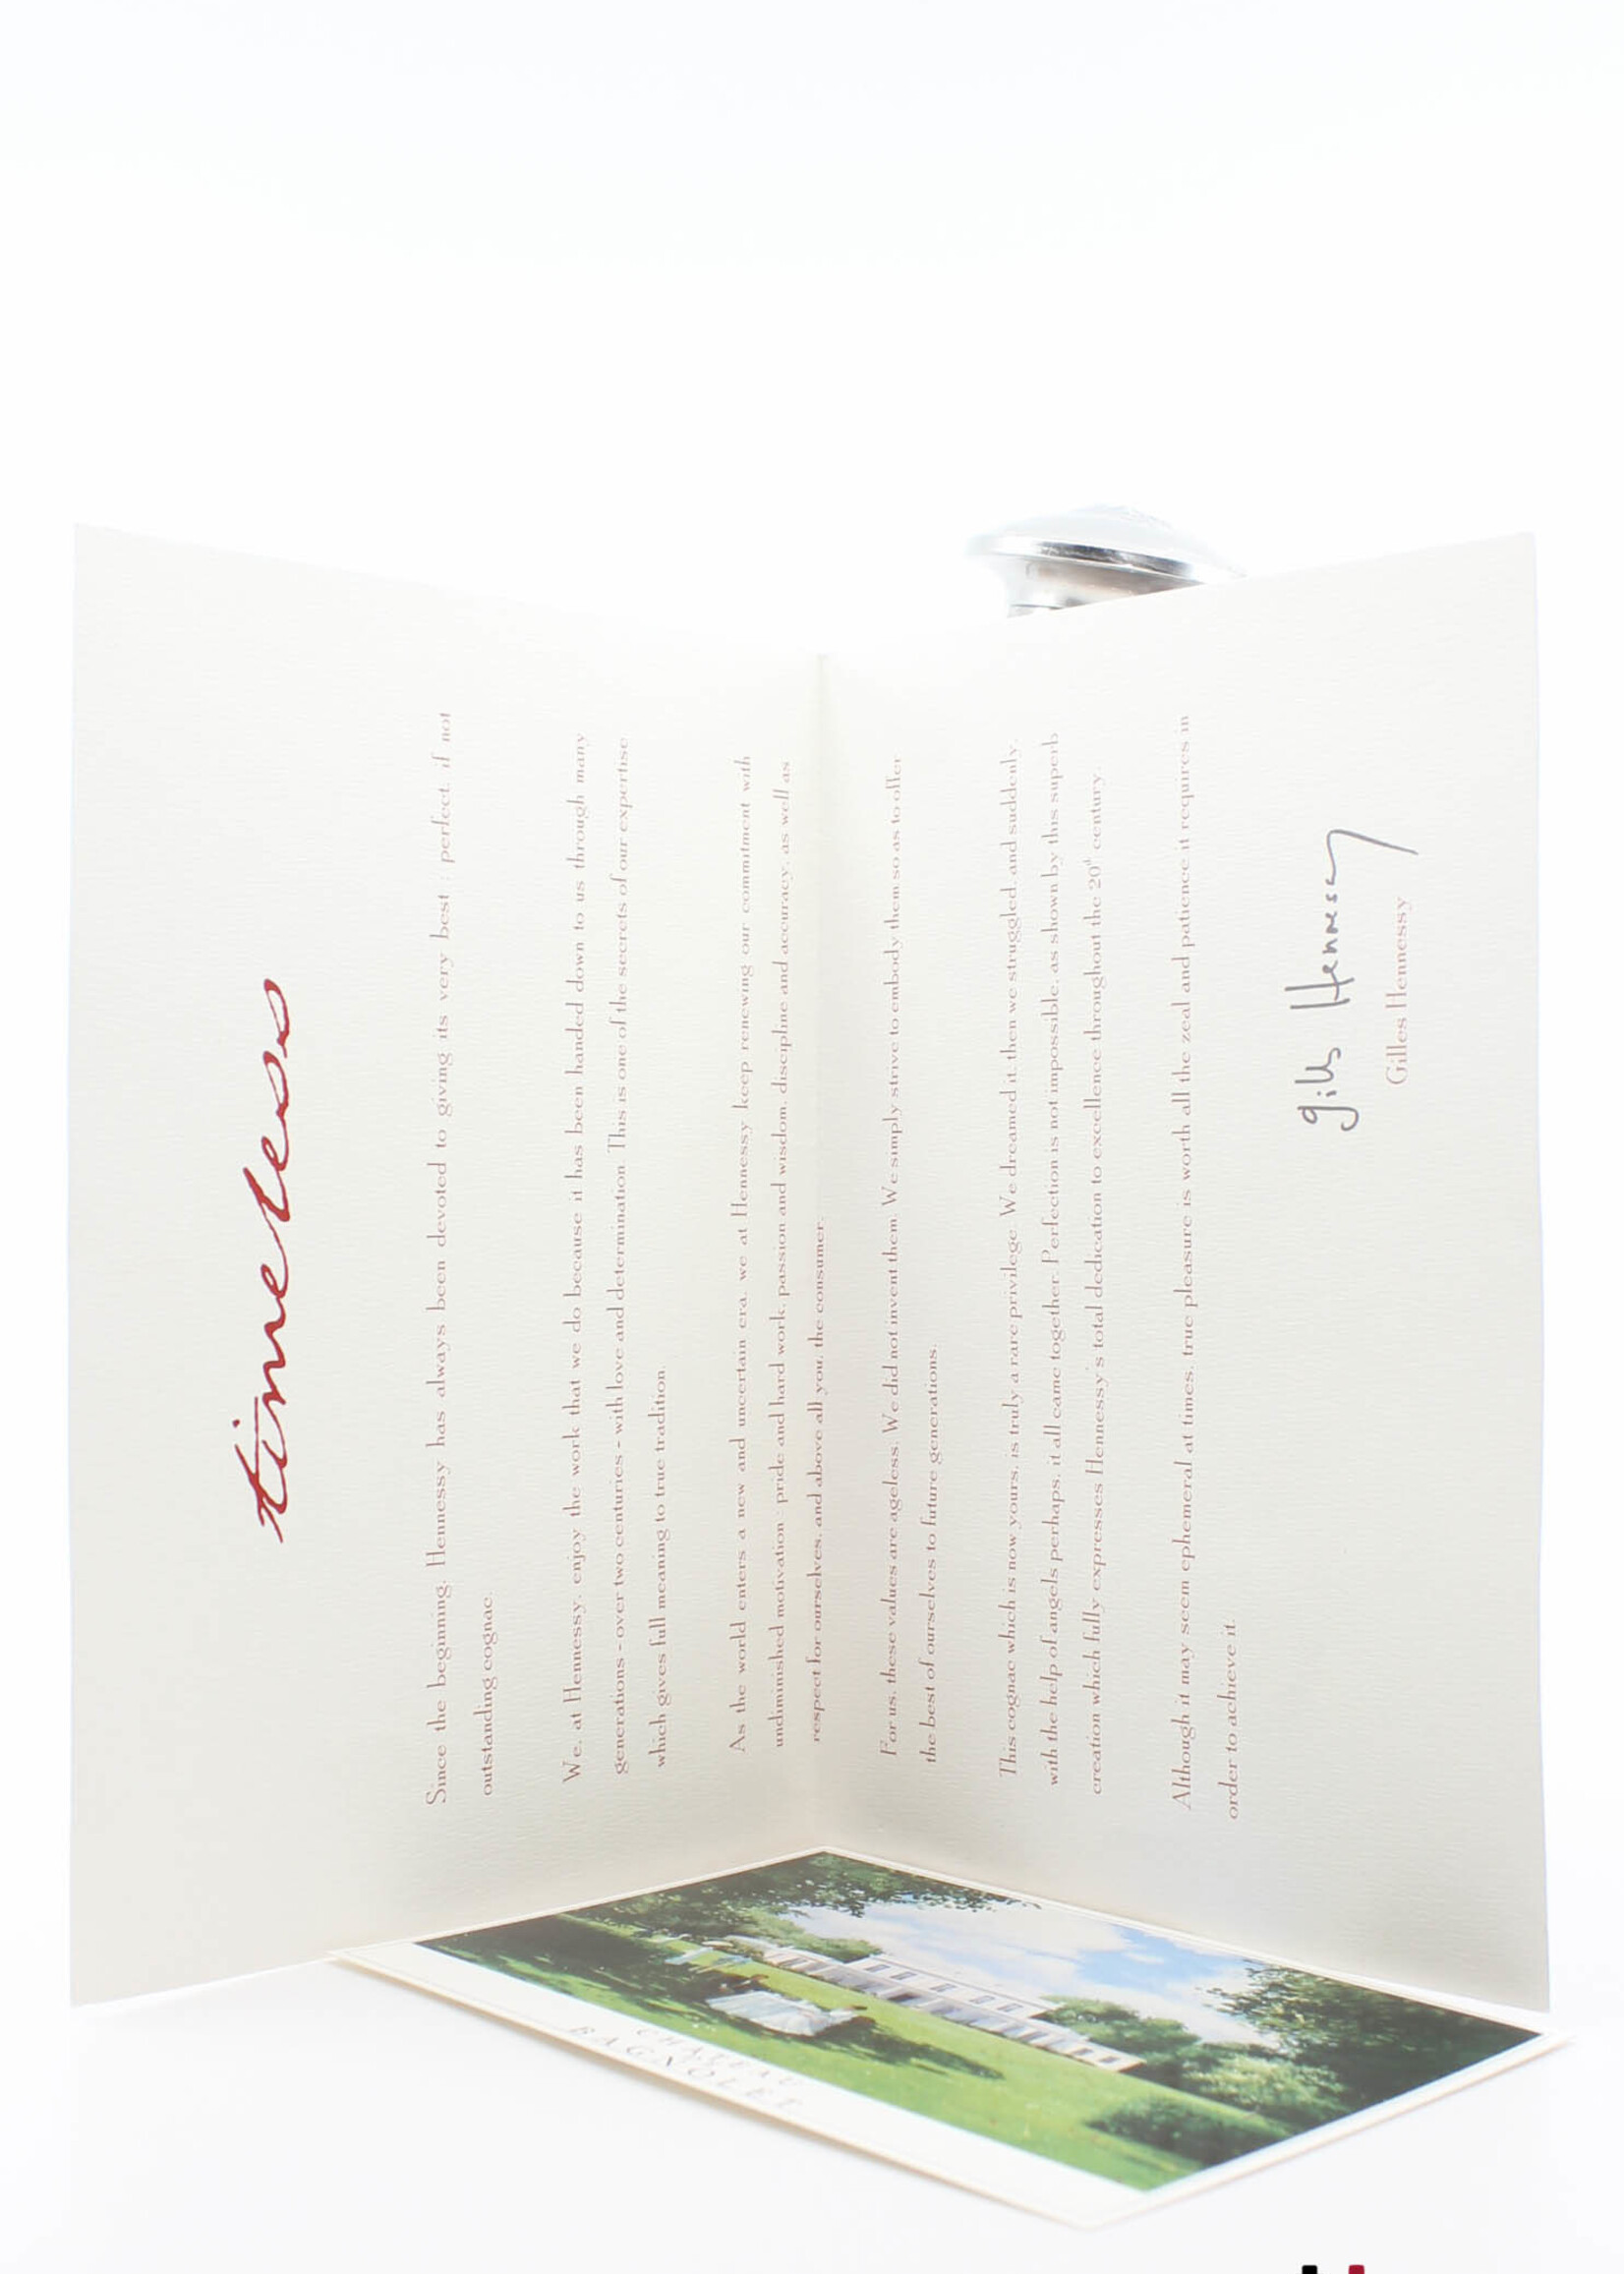 timeless
Since the beginning, Hennessy has always been devoted to giving its very best : perfect, if not
outstanding cognac.
We, at Hennessy, enjoy the work that we do because it has been handed down to us through many
generations - over two centuries - with love and determination. This is one of the secrets of our expertise
which gives full meaning to true tradition.
As the world enters a new and uncertain era, we at Hennessy keep renewing our commitment with
undiminished motivation : pride and hard work, passion and wisdom, discipline and accuracy, as well as
respect for ourselves, and above all you, the consumer.
For us, these values are ageless. We did not invent them. We simply strive to embody them so as to offer
the best of ourselves to future generations.
This cognac which is now yours, is truly a rare privilege. We dreamed it, then we struggled, and suddenly,
with the help of angels perhaps, it all came together. Perfection is not impossible, as shown by this superb
creation which fully expresses Hennessy's total dedication to excellence throughout the 20th century.
Although it may seem ephemeral at times, true pleasure is worth all the zeal and patience it requires in
order to achieve it.
Gilles Hennessy
Gilles Hennessy
CHATEAU
BAGNOLET